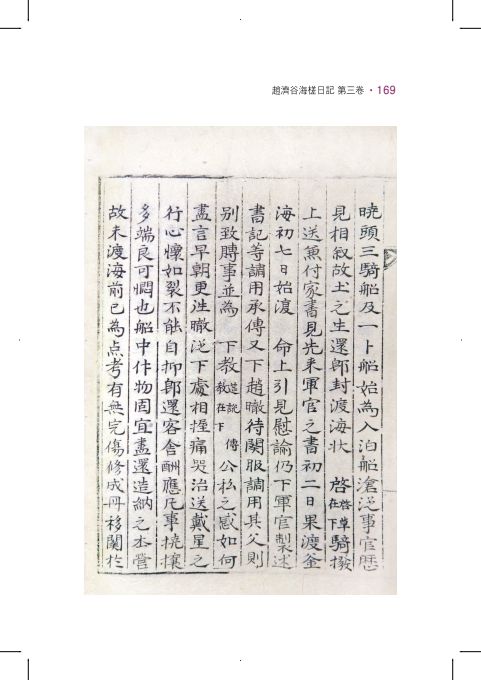 趙濟谷海槎日記 第三卷 • 169
曉頭三騎船及一卜船始爲入泊船滄泛事官歷
見相叙故土之生還卽封渡海狀 啓 啓草在下 騎撥
上送兼付家書見先來軍官之書初二日果渡釜
海初七日始渡 命上引見慰諭仍下軍官製述
書記等調用承傳又下趙瞮待闋服調用其父則
別致賻事並爲 下教 筵說傳教在下 公私之感如何
盡言早朝更進瞮泛下處相握痛哭治送戴星之
行心懷如裂不能自抑卽還客舍酬應凡事撓攘
多端良可憫也船中什物固宜盡還造納之本營
故未渡海前已爲点考有無完傷修成冊移關於